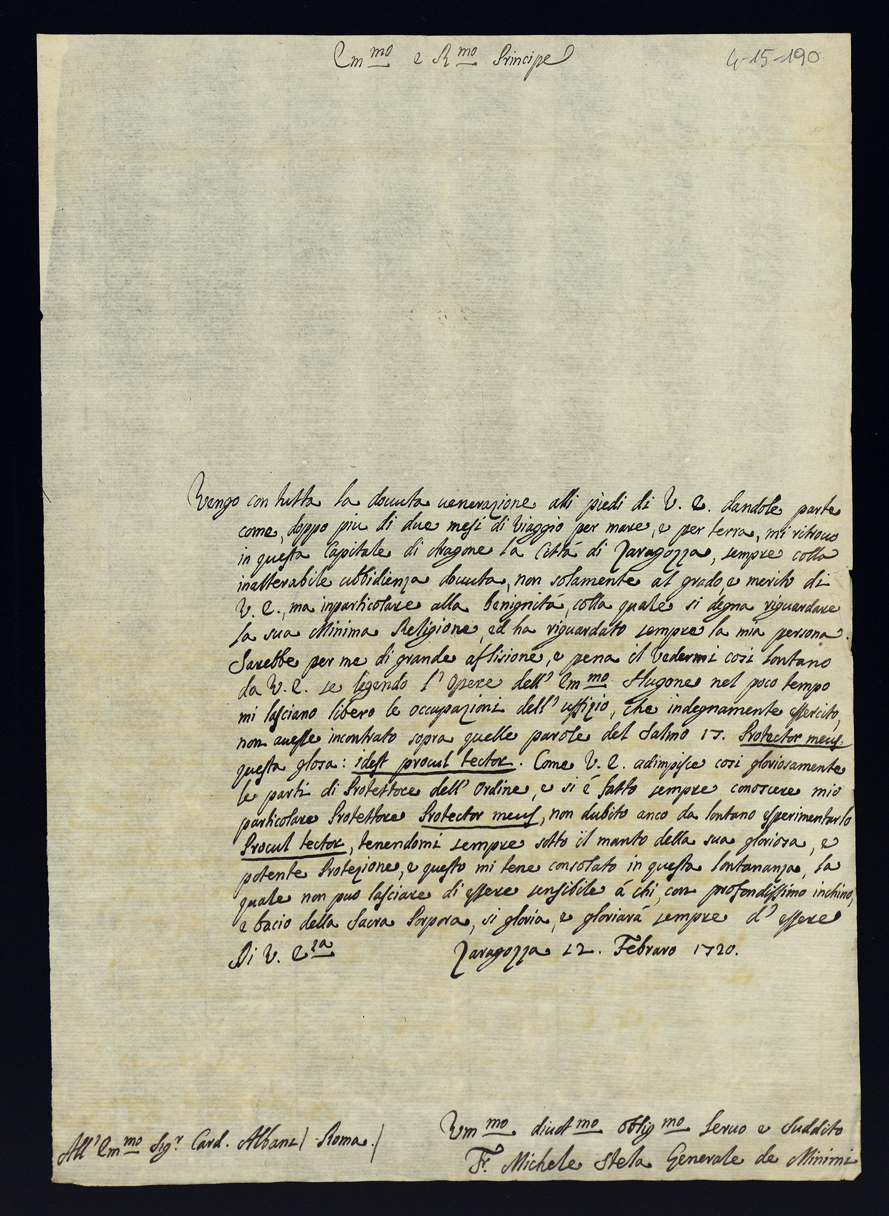 Em.mo e R.mo Principe
4-15-190
Vengo con tutta la dovuta venerazione alli piedi di V. E. dandole parte
come, doppo piu di due mesi di viaggio per mare, e per terra, mi ritrovo
in questa Capitale di Aragone la Città di Zaragozza, sempre colla
inalterabile ubbidienza dovuta, non solamente al grado, e merito di
V. E., ma inparticolare alla benignità, colla quale si degna riguardare
la sua Minima Religione, ed ha riguardato sempre la mia persona.
Sarebbe per me di grande aflisione, e pena il vedermi cosi lontano
da V. E. se legendo l'opere dell' Em.mo Hugone nel poco tempo
mi lasciano libero le occupazioni dell' uffizio, che indegnamente essercito,
non avesse incontrato sopra quelle parole del Salmo 17. Protector meus
questa glosa: idest procul tector. Come V. E. adimpisce cosi gloriosamente
le parti di Protettore dell' Ordine, e si è fatto sempre conoscere mio
particolare Protettore Protector meus, non dubito anco da lontano esperimentarlo
Procul tector, tenendomi sempre sotto il manto della sua gloriosa, e
potente Protezione, e questo mi tene consolato in questa lontananza, la
quale non può lasciare di essere sensibile à chi, con profondissimo inchino,
e bacio della Sacra Porpora, si gloria, e gloriarà sempre d' essere
Di V. E.za Zaragozza 12. Febraro 1720.
Um.mo divot.mo oblig.mo Servo e Suddito
All' Em.mo Sig.r Card. Albani / Roma. /
Fr. Michele Stela Generale de Minimi